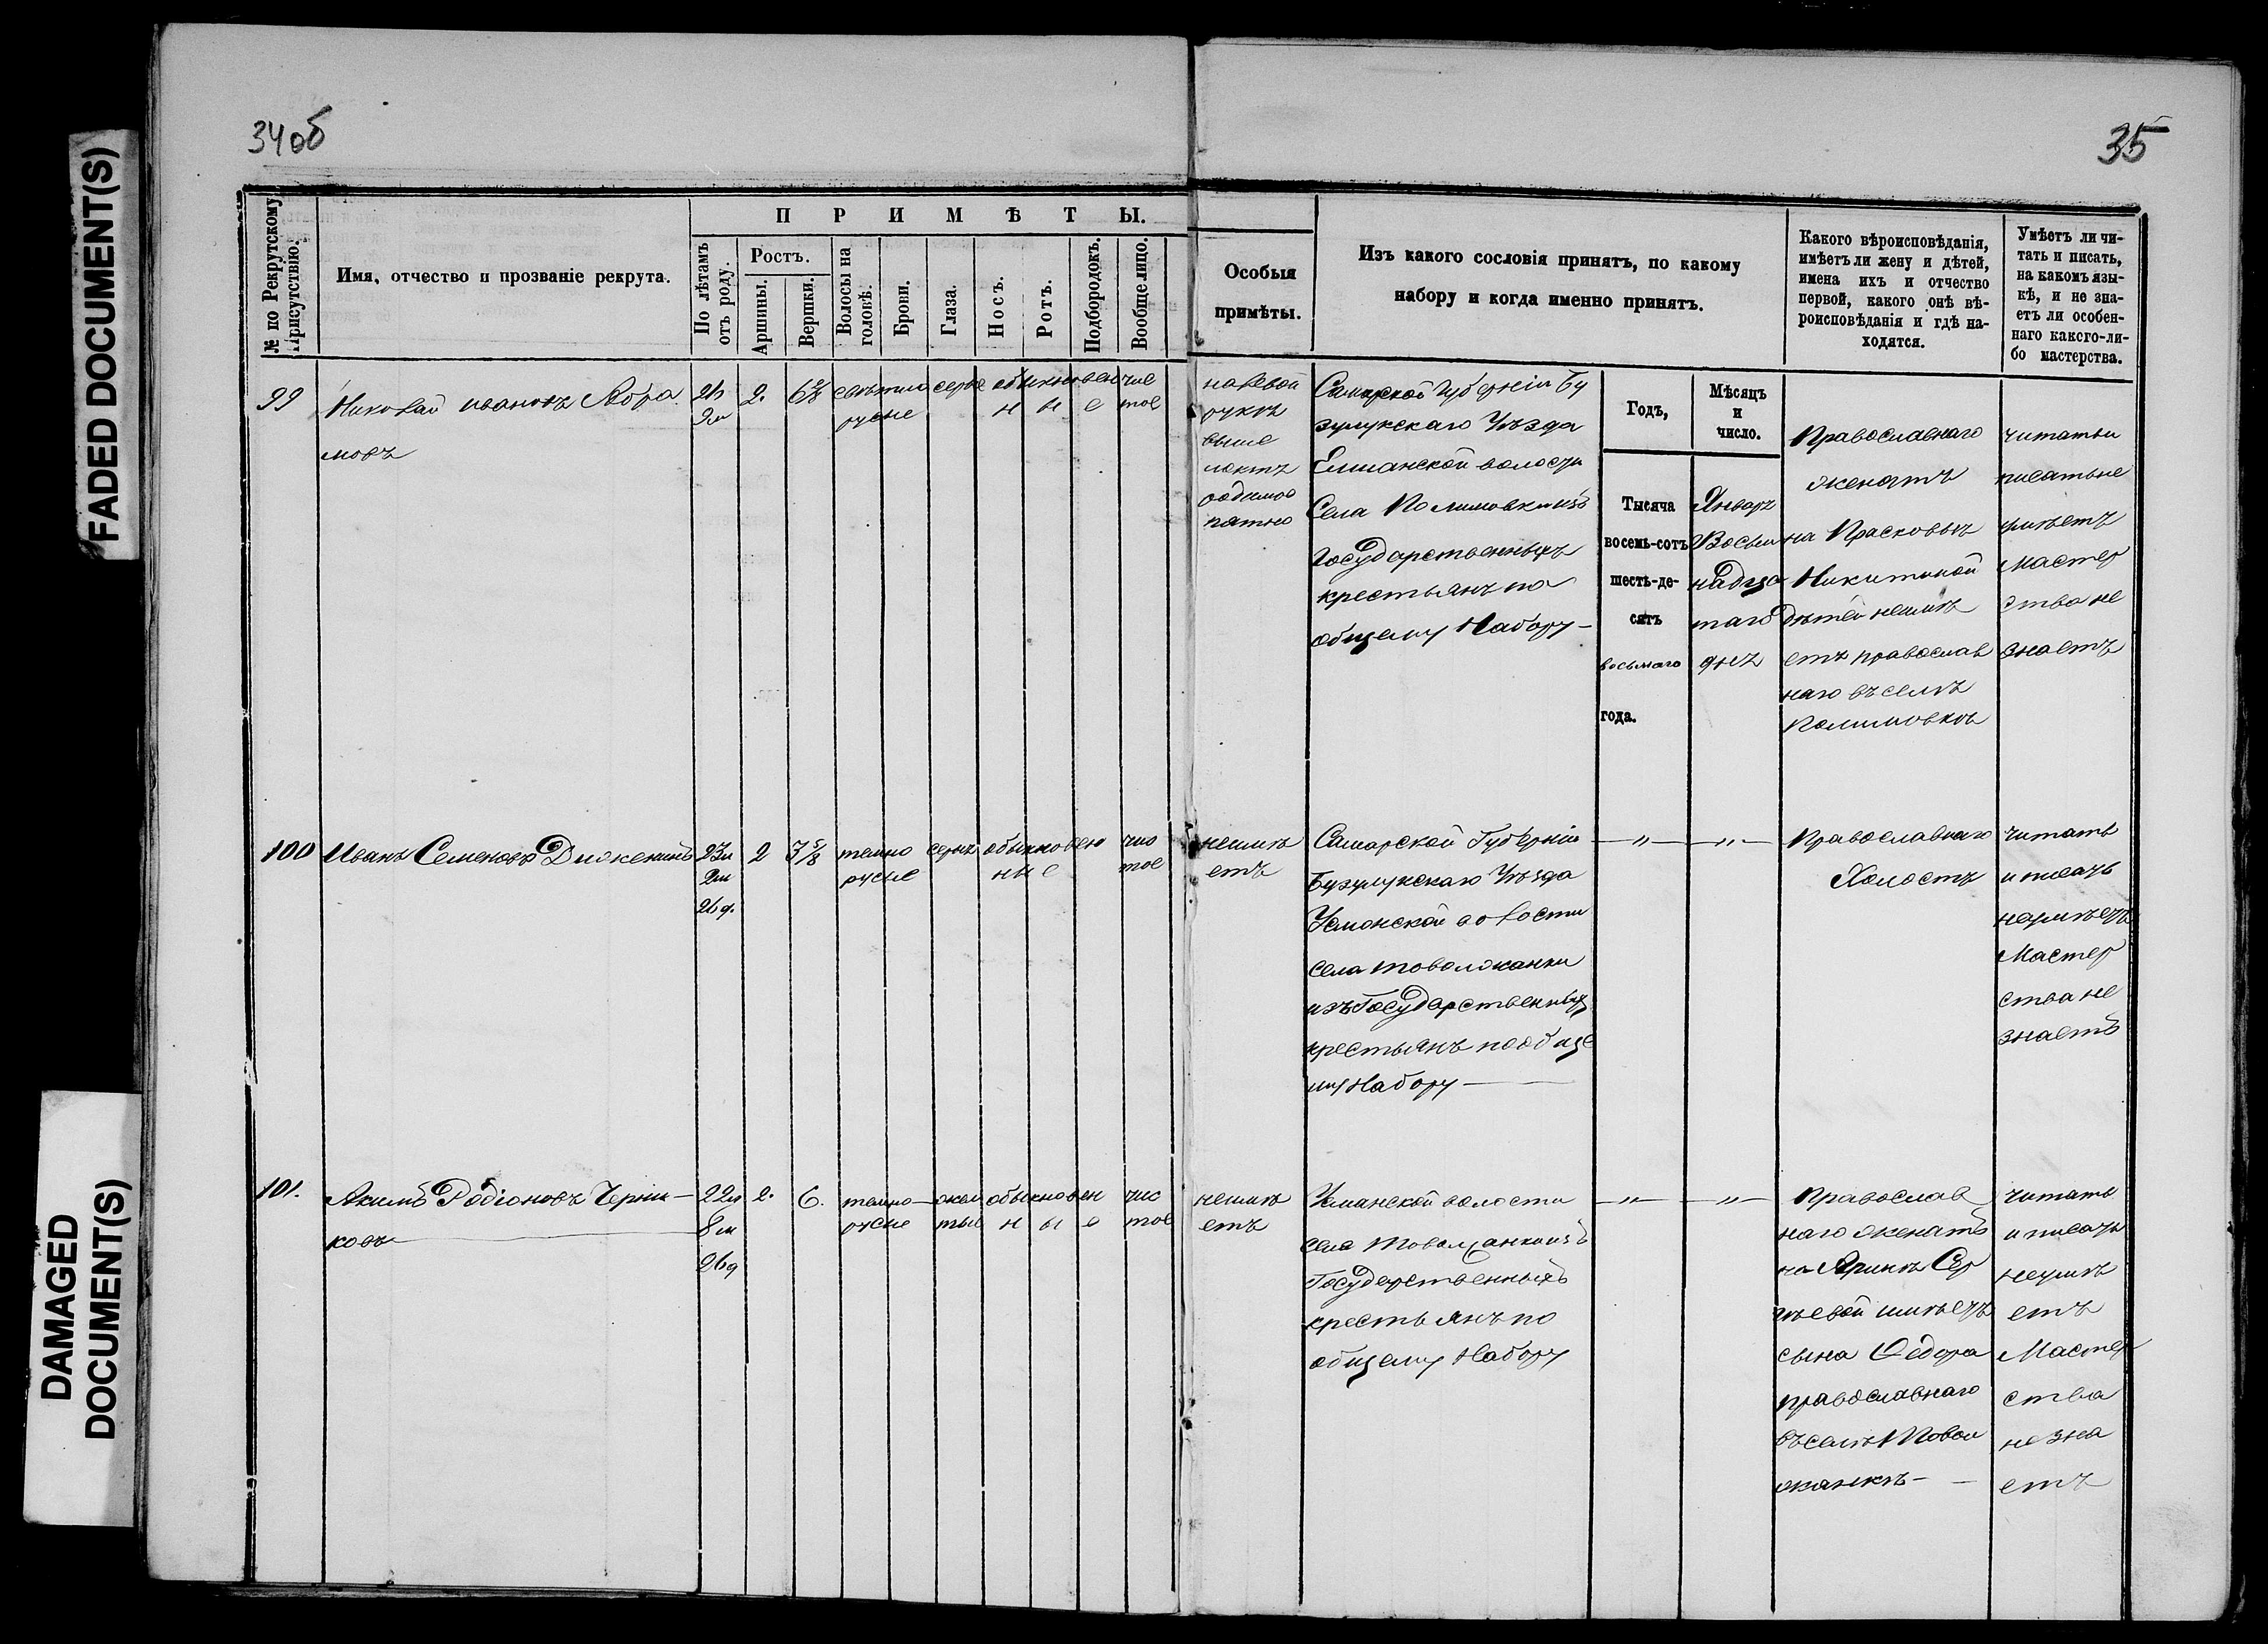 34об
35
FADED DOCUMENT(S)
DAMAGED
DOCUMENT(S)
№ по Рекрутскому
Присутствію.
Имя, отчество и прозваніе рекрута.
ПРИМѢТЫ.
По лѣтамъ
отъ роду.
Ростъ.
Аршины.
Вершки.
Волосы на
головѣ.
Брови.
Глаза.
Носъ.
Ротъ.
Подбородокъ.
Вообще лицо.
Особыя
примѣты.
Изъ какого сословія принятъ, по какому
набору и когда именно принятъ.
Какого вѣроисповѣданія,
имѣетъ ли жену и дѣтей,
имена ихъ и отчество
первой, какого онѣ вѣ-
роисповѣданія и гдѣ на-
ходятся.
Умѣетъ ли чи-
тать и писать,
на какомъ язы-
кѣ, и не зна-
етъ ли особен-
наго какого-ли-
бо мастерства.
99
Николай Ивановъ
мовъ
2.
свѣтло
русые
серые
обыкновен
н ы е
чис
тое
на левой
рукѣ
выше
локтя
родимое
пятно
Самарской Губерніи Бу
зулукскаго Уѣзда
волости
Села
Государственныхъ
крестьянъ по
общему Набору —
Годъ,
Мѣсяцъ
и
число.
Тысяча
восемь-сотъ
шесть-де-
сятъ
восьмаго
года.
Январь
Восьм
надца
таго
дня
Православнаго
женатъ
на Прасковьѣ
Никитиной
дѣтей неимѣ
етъ православ
наго въ селѣ
читать и
писать не
умѣетъ
мастер
ства не
знаетъ
100
Иванъ Семеновъ
23л
2м
26д.
2
3 5/8
темно
русые
серые
обыкновен
ные
чис
тое
неимѣ
етъ
Самарской Губерніи
Бузулукскаго Уѣзда
волости
села Товолжанки
изъ Государственныхъ
крестьянъ по обще
му Набору —
— „ —
— „ —
Православнаго
Холостъ
читать
и писать
неумѣетъ
Мастер
ства не
знаетъ
101.
Акимъ Родіоновъ Черни —
ковъ
22л
8м
26д
2.
6.
темно —
русые
обыкновен
н ы е
чис
тое
неимѣ
етъ
волости
села Товолжанки изъ
Государственныхъ
крестьянъ по
общему Набору
— „ —
— „ —
Православ
наго женатъ
на Аринѣ Сер
гѣевой имѣетъ
сына Ѳедора
православнаго
въ селѣ Товол
жанкѣ —
читать
и писать
неумѣ
етъ
Мастер
ства
не зна
етъ